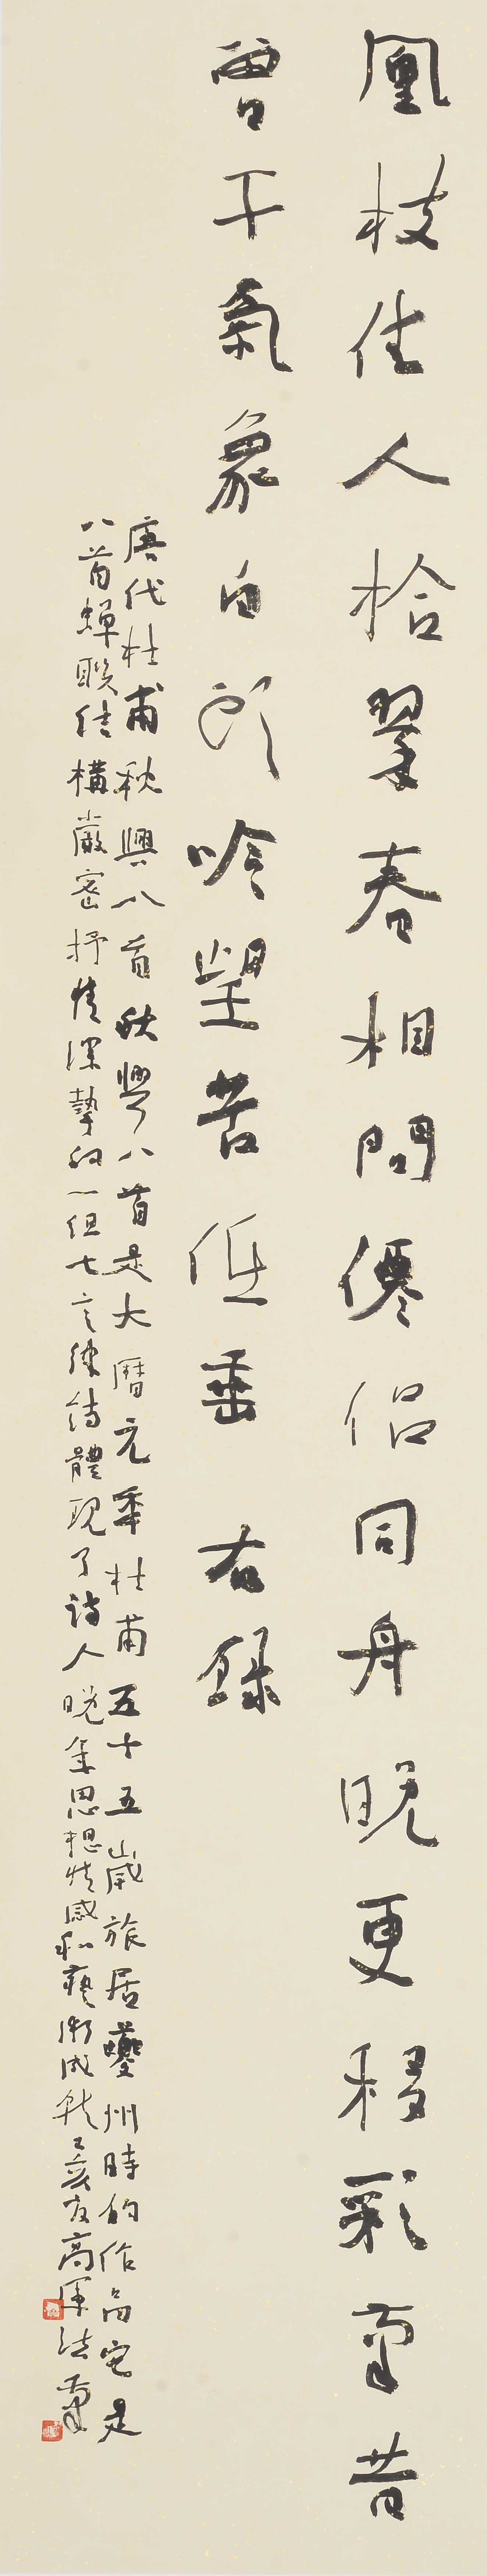 凰枝佳人拾翠春相問僊侶同舟晚更移彩筆昔
曾干氣象白頭吟望苦低垂 右錄
唐代杜甫秋興八首秋興八首是大曆元年杜甫五十五歲旅居夔州時的作品它是
八首蟬聯結構嚴密抒情深摯的一組七言律詩體現了詩人晚年思想情感和藝術成就己亥夏高軍法筆